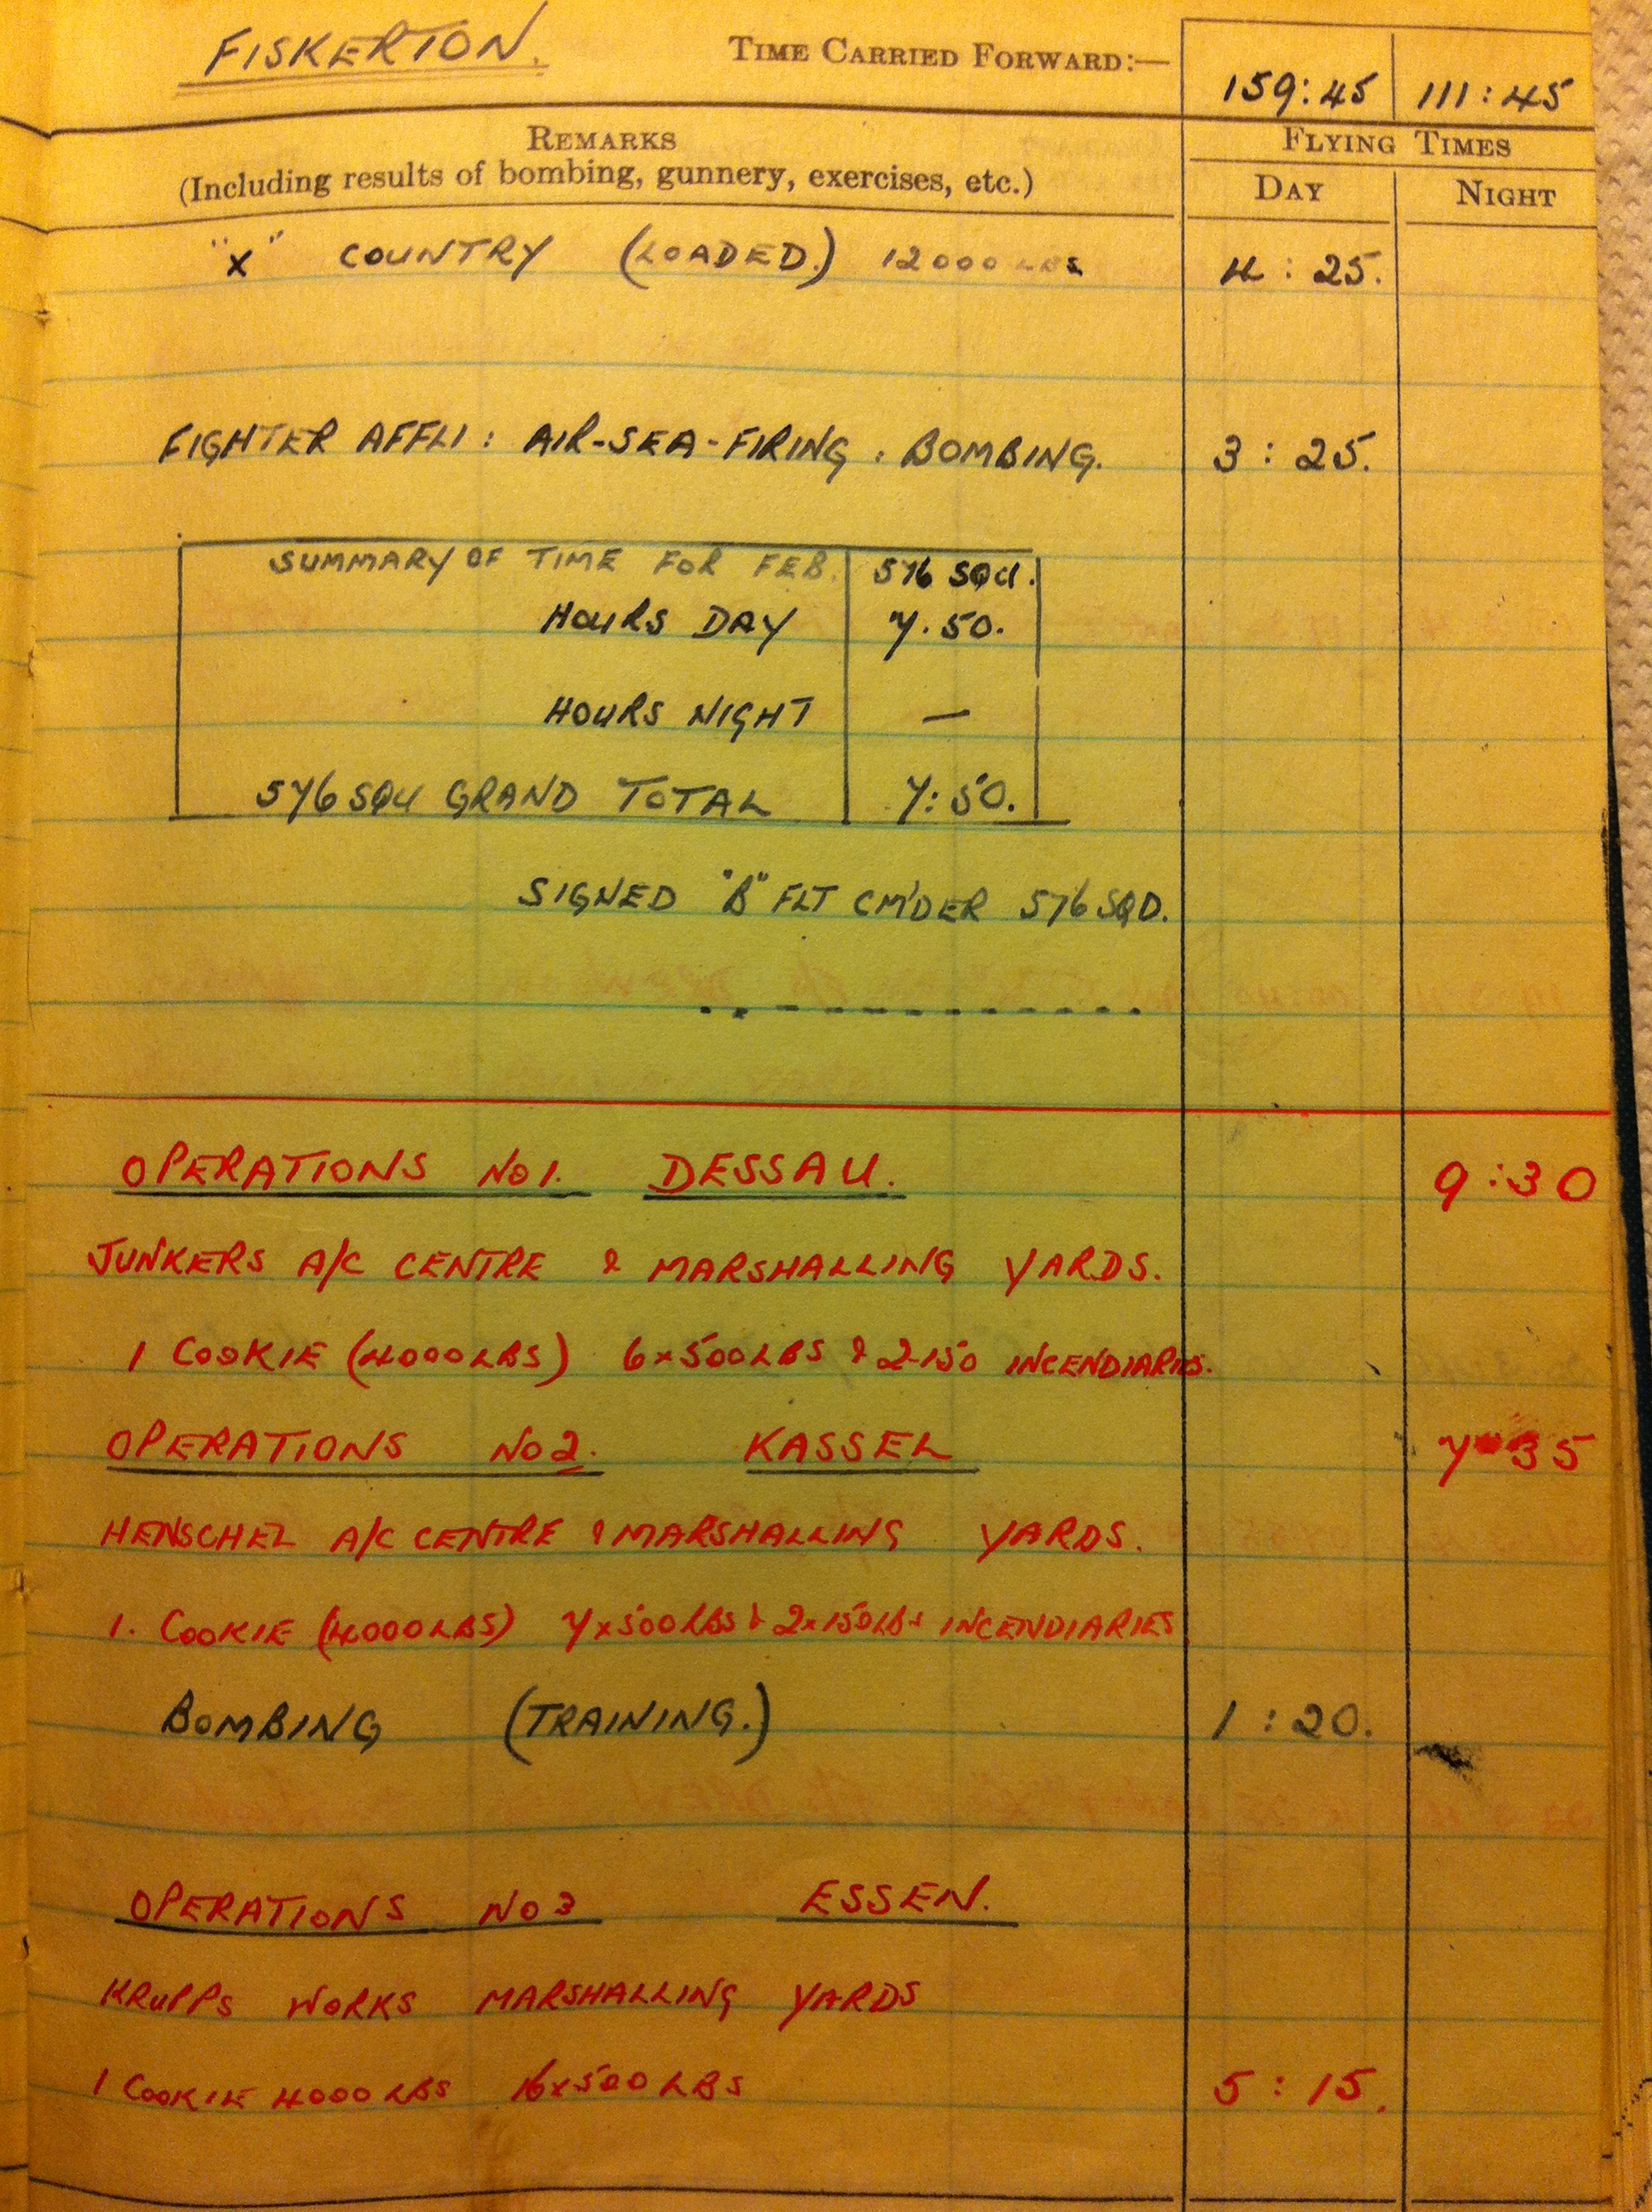 FISKERTON. TIME CARRIED FORWARD:— 159:45 111:45
REMARKS FLYING TIMES
(Including results of bombing, gunnery, exercises, etc.) DAY NIGHT
"X" COUNTRY (LOADED.) 12000 LBS 4:25.
FIGHTER AFFLI: AIR-SEA-FIRING: BOMBING. 3:25.
SUMMARY OF TIME FOR FEB. 576 SQD.
HOURS DAY 7.50.
HOURS NIGHT —
576 SQD GRAND TOTAL 7:50.
SIGNED "B" FLT CM'DER 576 SQD.
OPERATIONS NO1. DESSAU. 9:30
JUNKERS A/C CENTRE & MARSHALLING YARDS.
1 COOKIE (4000LBS) 6x500LBS & 2-150 INCENDIARIES.
OPERATIONS NO2. KASSEL 7-35
HENSCHEL A/C CENTRE & MARSHALLING YARDS.
1. COOKIE (4000LBS) 7x500LBS & 2x150LBS INCENDIARIES
BOMBING (TRAINING.) 1:20.
OPERATIONS NO3 ESSEN.
KRUPPS WORKS MARSHALLING YARDS
1 COOKIE 4000LBS 16x500LBS 5:15.